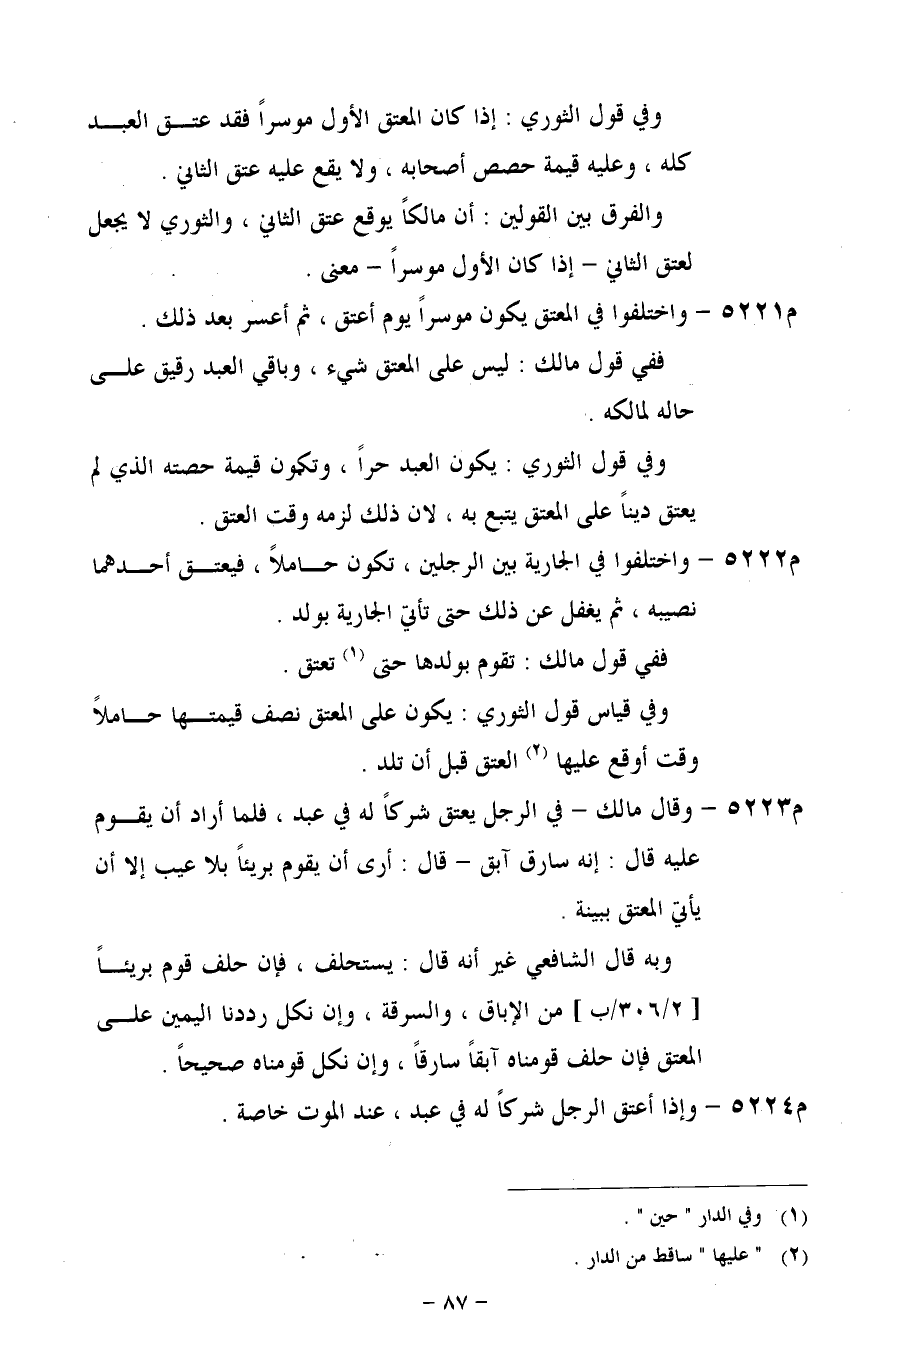 وفي قول الثوري : إذا كان المعتق الأول موسراً فقد عتـــق العبـــد
كله ، وعليه قيمة حصص أصحابه ، ولا يقع عليه عتق الثاني .
والفرق بين القولين : أن مالكاً يوقع عتق الثاني ، والثوري لا يجعل
لعتق الثاني – إذا كان الأول موسراً – معنى .
م٥٢٢١ – واختلفوا في المعتق يكون موسراً يوم أعتق ، ثم أعسر بعد ذلك .
ففي قول مالك : ليس على المعتق شيء ، وباقي العبد رقيق علـــى
حاله لمالكه .
وفي قول الثوري : يكون العبد حراً ، وتكون قيمة حصته الذي لم
يعتق ديناً على المعتق يتبع به ، لان ذلك لزمه وقت العتق .
م٥٢٢٢ – واختلفوا في الجارية بين الرجلين ، تكون حـــاملاً ، فيعتـــق أحـــدهما
نصيبه ، ثم يغفل عن ذلك حتى تأتي الجارية بولد .
ففي قول مالك : تقوم بولدها حتى (١) تعتق .
وفي قياس قول الثوري : يكون على المعتق نصف قيمتـــها حـــاملاً
وقت أوقع عليها (٢) العتق قبل أن تلد .
م٥٢٢٣ – وقال مالك – في الرجل يعتق شركاً له في عبد ، فلما أراد أن يقـــوم
عليه قال : إنه سارق آبق – قال : أرى أن يقوم بريئاً بلا عيب إلا أن
يأتي المعتق ببينة .
وبه قال الشافعي غير أنه قال : يستحلف ، فإن حلف قوم بريئـــاً
[ ٣٠٦/٢/ب ] من الإباق ، والسرقة ، وإن نكل رددنا اليمين علـــى
المعتق فإن حلف قومناه آبقاً سارقاً ، وإن نكل قومناه صحيحاً .
م٥٢٢٤ – وإذا أعتق الرجل شركاً له في عبد ، عند الموت خاصة .
(١) وفي الدار " حين " .
(٢) " عليها " ساقط من الدار .
– ٨٧ –